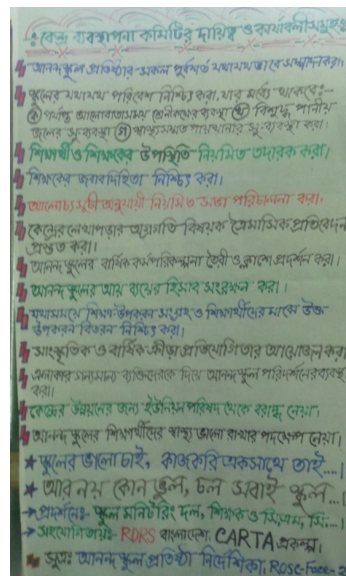 কেন্দ্র ব্যবস্থাপনা কমিটির দায়িত্ব ও কার্যাবলীসমূহঃ
আনন্দ স্কুল প্রতিষ্ঠার সকল পূর্বশর্ত যথাযথভাবে সম্পাদন করা।
স্কুলের যথাযথ পরিবেশ নিশ্চিত করা, যার মধ্যে থাকবেঃ-
ক পর্যাপ্ত আলোবাতাসময় শ্রেণিকক্ষের ব্যবস্থা খ বিশুদ্ধ পানীয়
জলের সু-ব্যবস্থা গ স্বাস্থ্যসম্মত পায়খানার সু-ব্যবস্থা করা।
শিক্ষার্থী ও শিক্ষকের উপস্থিতি নিয়মিত তদারক করা।
শিক্ষকের জবাবদিহিতা নিশ্চিত করা।
আলোচ্যসূচী অনুযায়ী নিয়মিত সভা পরিচালনা করা।
কেন্দ্রের লেখাপড়ার অগ্রগতি বিষয়ক ত্রৈমাসিক প্রতিবেদন
প্রস্তুত করা।
আনন্দ স্কুলের বার্ষিক কর্মপরিকল্পনা তৈরী ও ক্লাশে প্রদর্শন করা।
আনন্দ স্কুলের আয় ব্যয়ের হিসাব সংরক্ষন করা।
যথাসময়ে শিক্ষা উপকরন সংগ্রহ ও শিক্ষার্থীদের মাঝে উক্ত
উপকরন বিতরন নিশ্চিত করা।
সাংস্কৃতিক ও বার্ষিক ক্রীড়া প্রতিযোগিতার আয়োজন করা
এলাকার গন্যমান্য ব্যক্তিদেরকে দিয়ে আনন্দ স্কুল পরিদর্শনের ব্যবস্থা
করা।
কেন্দ্রের উন্নয়নের জন্য ইউনিয়ন পরিষদ থেকে বরাদ্ধ নেয়া।
আনন্দ স্কুলের শিক্ষার্থীদের স্বাস্থ্য ভালো রাখার পদক্ষেপ নেয়া।
★ স্কুলের ভালো চাই, কাজ করি একসাথে তাই....।
★ আর নয় কোন ভুল, চল সবাই স্কুল...।
→ প্রদর্শনেঃ- স্কুল মনিটরিং দল, শিক্ষক ও সিএমসি
→ সহযোগিতায়ঃ- RDRS বাংলাদেশ, CARTA প্রকল্প।
সূত্রঃ আনন্দ স্কুল প্রতিষ্ঠা নির্দেশিকা, Rosc-Face-2